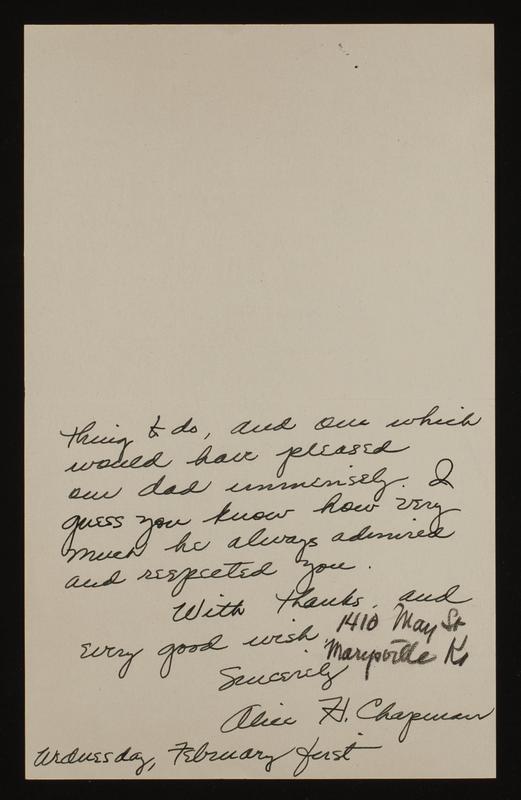 thing to do, and one which
would have pleased
our dad immensely. I
guess you know how very
much he always admired
and respected you.
With thanks, and
every good wish
1410 May St
Marysville Ks
Sincerely
Alice H. Chapman
Wednesday, February first